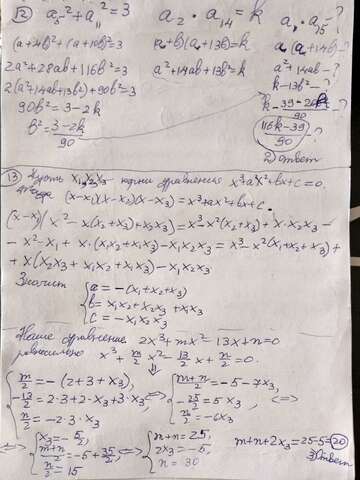 12 a₅² + a₁₁² = 3   a₂ · a₁₄ = k   a₁ · a₁₅ - ?
(a+4b)² + (a+10b)² = 3   (a+b)(a+13b) = k   a(a+14b) - ?
2a² + 28ab + 116b² = 3   a² + 14ab + 13b² = k   a² + 14ab - ?
2(a² + 14ab + 13b²) + 90b² = 3   k - 13b² - ?
90b² = 3 - 2k
b² = (3-2k)/90   k - (39-26k)/90
(116k-39)/90 - ?
2) ответ
13 Пусть x₁x₂x₃ - корни уравнения x³ + ax² + bx + c = 0.
тогда (x-x₁)(x-x₂)(x-x₃) = x³ + ax² + bx + c.
(x-x₁)(x² - x(x₂+x₃) + x₂x₃) = x³ - x²(x₂+x₃) + x·x₂x₃ -
- x²·x₁ + x·(x₁x₂ + x₁x₃) - x₁x₂x₃ = x³ - x²(x₁+x₂+x₃) +
+ x(x₂x₃ + x₁x₂ + x₁x₃) - x₁x₂x₃
Значит { a = -(x₁+x₂+x₃)
b = x₁x₂ + x₂x₃ + x₁x₃
c = -x₁x₂x₃
Наше уравнение 2x³ + mx² - 13x + n = 0
равносильно x³ + m/2 x² - 13/2 x + n/2 = 0.
⇓
{ m/2 = -(2+3+x₃)   { (m+n)/2 = -5 - 7x₃
-13/2 = 2·3 + 2·x₃ + 3·x₃ ⇔ -25/2 = 5x₃ ⇔
n/2 = -2·3·x₃   n/2 = -6x₃
⇔ { x₃ = -5/2   { m+n = 25,   m+n+2x₃ = 25-5 = 20
(m+n)/2 = -5 + 35/2 ⇔ 2x₃ = -5,   3) Ответ
n/2 = 15   n = 30